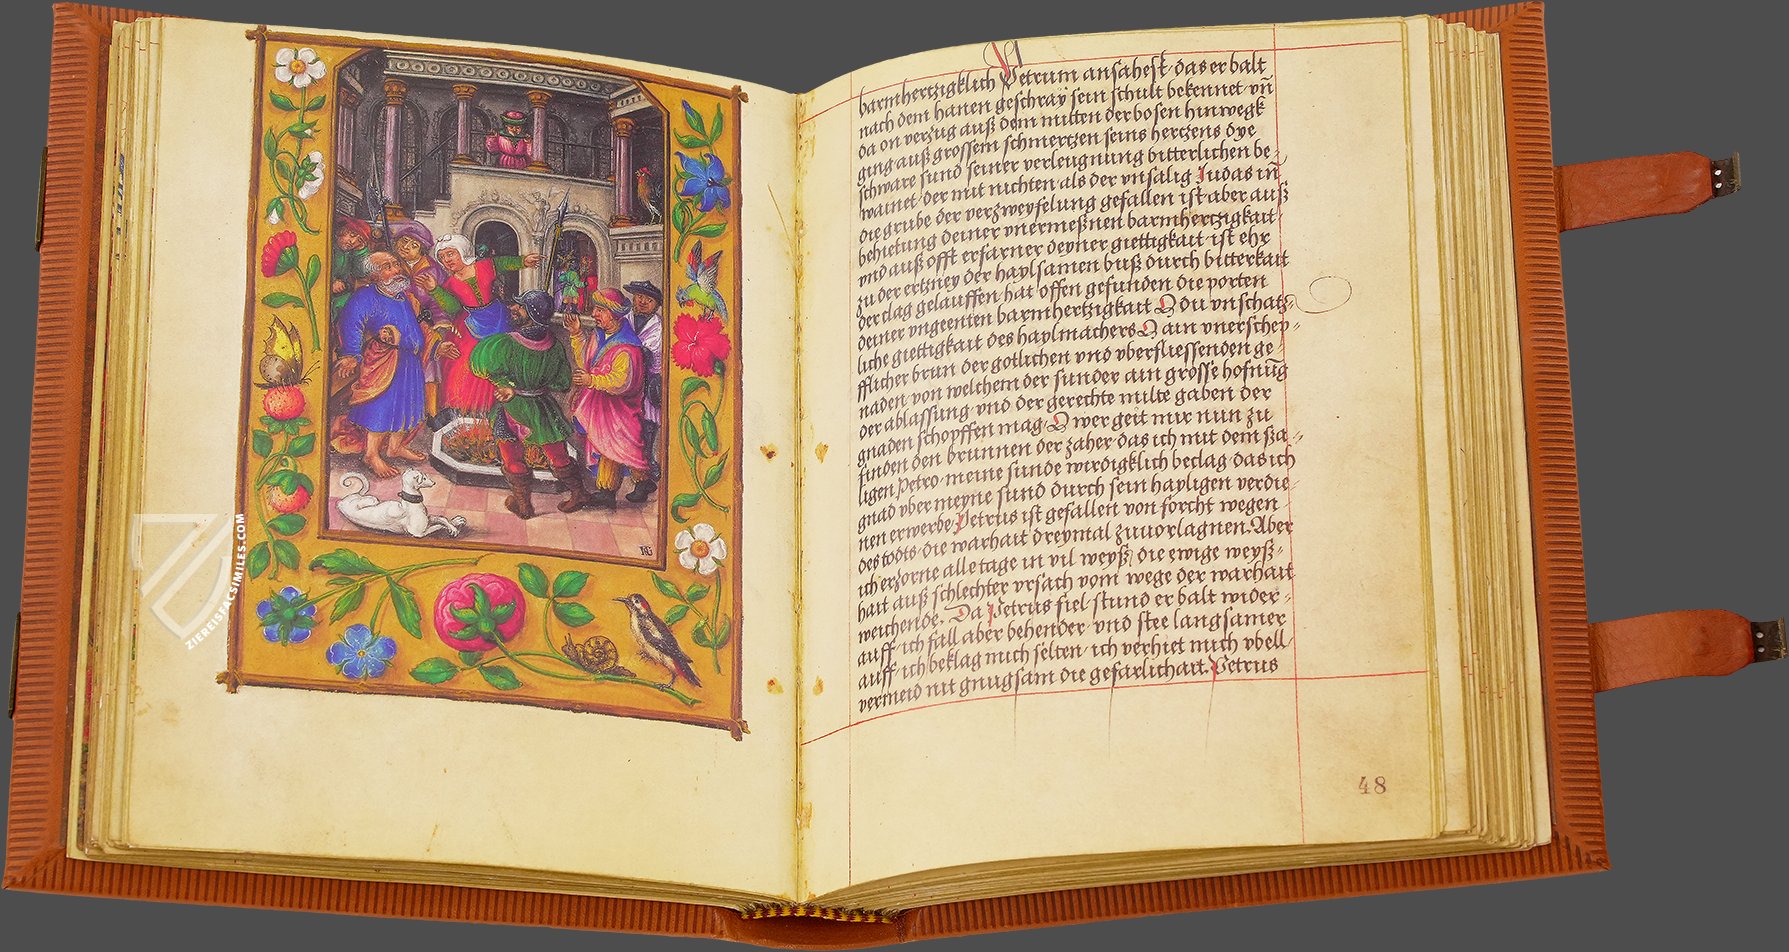 ZIEREISFACSIMILES.COM
HG
barmhertzigklich Petrum ansahest · das er balt
nach dem hanen geschray sein schult bekennet vn̄
da on verzug auß dem mitten der bosen hinwegk
ging auß grossem schmertzen seins hertzens dye
schware sund seiner verleugnung bitterlichen be⸗
wainet · der mit nichten als der vnsalig Judas in
die grube der verzweyfelung gefallen ist · aber auß
behietung deiner vnermeßnen barmhertzigkait
vnd auß offt erfarner deyner giettigkait · ist ehr
zu der ertzney der haylsamen buß durch bitterkait
der clag gelauffen · hat offen gefunden die porten
deiner vngeenten barmhertzigkait O du vnschatz⸗
liche giettigkait des haylmachers O ain vnerschep⸗
fflicher brun der gotlichen vnd vberfliessenden ge⸗
naden von welchem der sunder ain grosse hofnūg
der ablassung vnd der gerechte milte gaben der
gnaden schopffen mag · O wer geit mir nun zu
finden den brunnen der zaher · das ich mit dem hai⸗
ligen Petro · meine sunde wirdigklich beclag · das ich
gnad vber meyne sund durch sein hayligen verdie⸗
nen erwerbe · Petrus ist gefallen von forcht wegen
des todts · die warhait dreymal zuuorlagnen. Aber
ich erzorne alle tage in vil weyß die ewige weyß⸗
hait auß schlechter vrsach vom wege der warhait
weichende. Da Petrus fiel · stund er balt wider⸗
auff · ich fall aber behender · vnd stee langsamer
auff · ich beklag mich selten · ich verhiet mich vbell
vermeid nit gnugsam die gefarlichait. Petrus
48